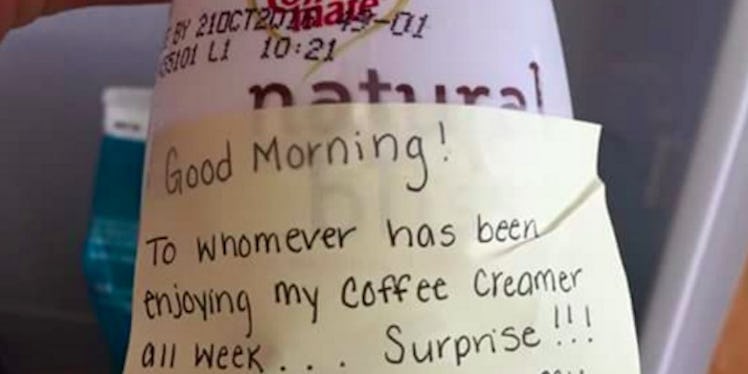 mate
BY 21OCT20
35101 L1 10:21
natural
Good Morning!
To whomever has been
enjoying my coffee creamer
all week . . . Surprise!!!